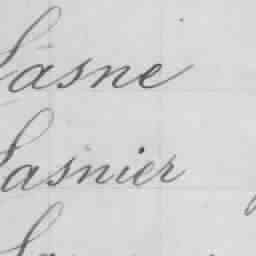 Lasne
Lasnier